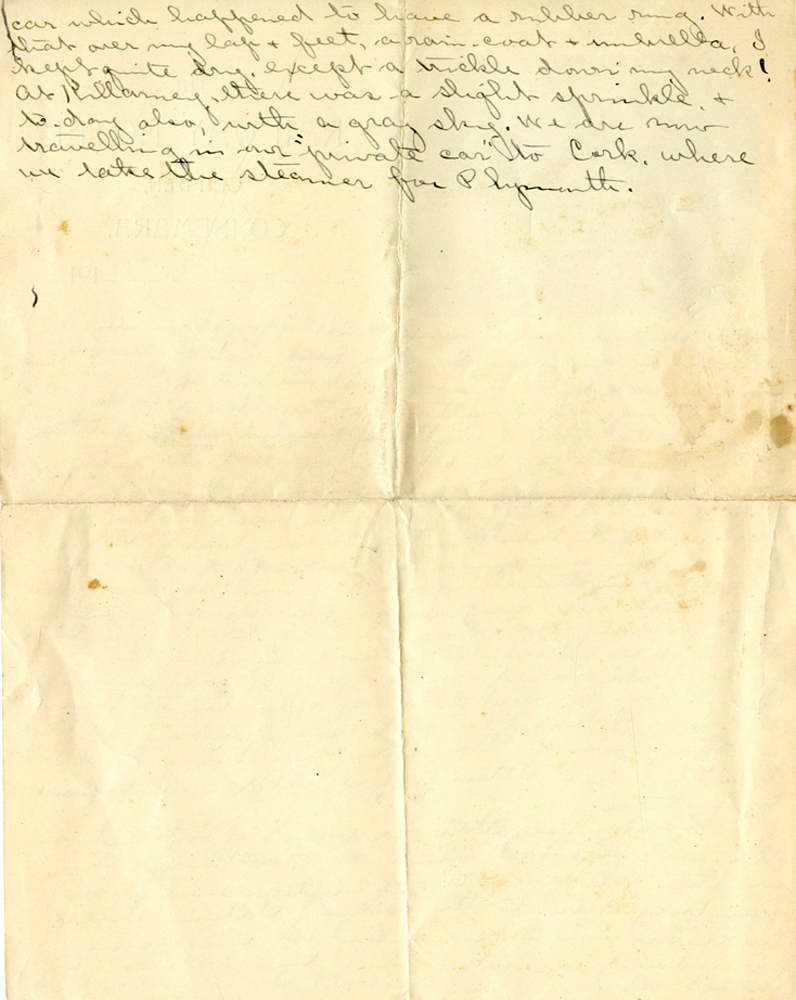 car which happened to have a rubber rug. With
that over my lap + feet, a rain-coat + umbrella, I
kept quite dry, except a trickle down my neck!
At Killarney, there was a slight sprinkle, +
to-day also, with a gray sky. We are now
travelling in our "private car" to Cork, where
we take the steamer for Plymouth.
CONNEMARA.
191